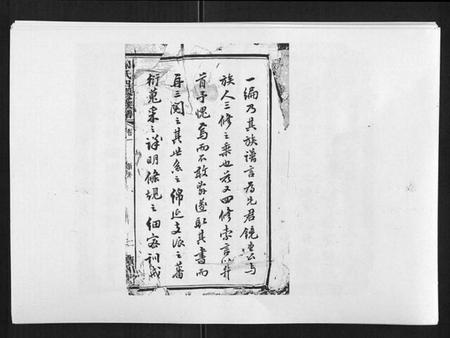 一編乃其族譜言為先君鏡堂公与
族人三修之乘也茲又四修索言以弁
首予愧焉而不敢辭遂取其書而
再三閱之其世系之綿延支派之蕃
衍蒐采之詳明條規之細密訓誡